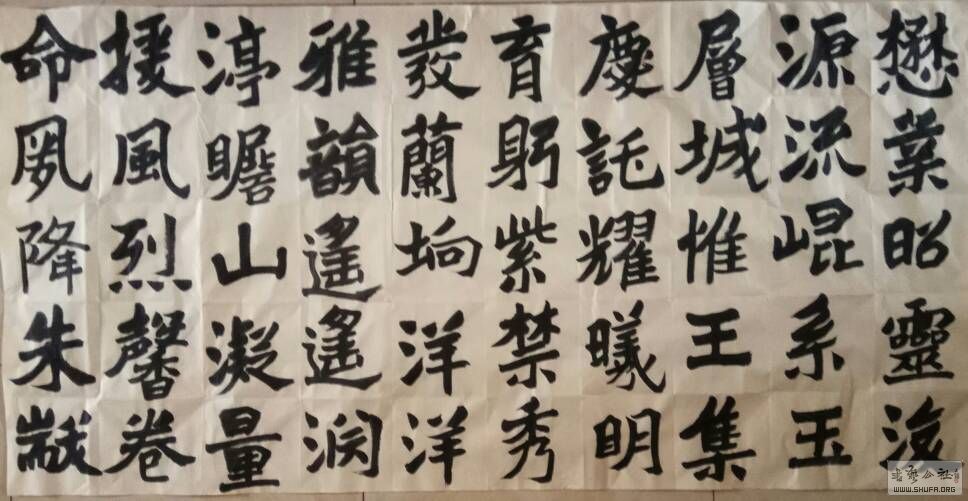 懋業昭靈浚
源流崐系玉
層城惟王集
慶託耀曦明
育躬紫禁秀
發蘭坰洋洋
雅韻遙遙淵
渟瞻山凝量
援風烈馨卷
命夙降朱黻
書藝公社
WWW.SHUFA.ORG